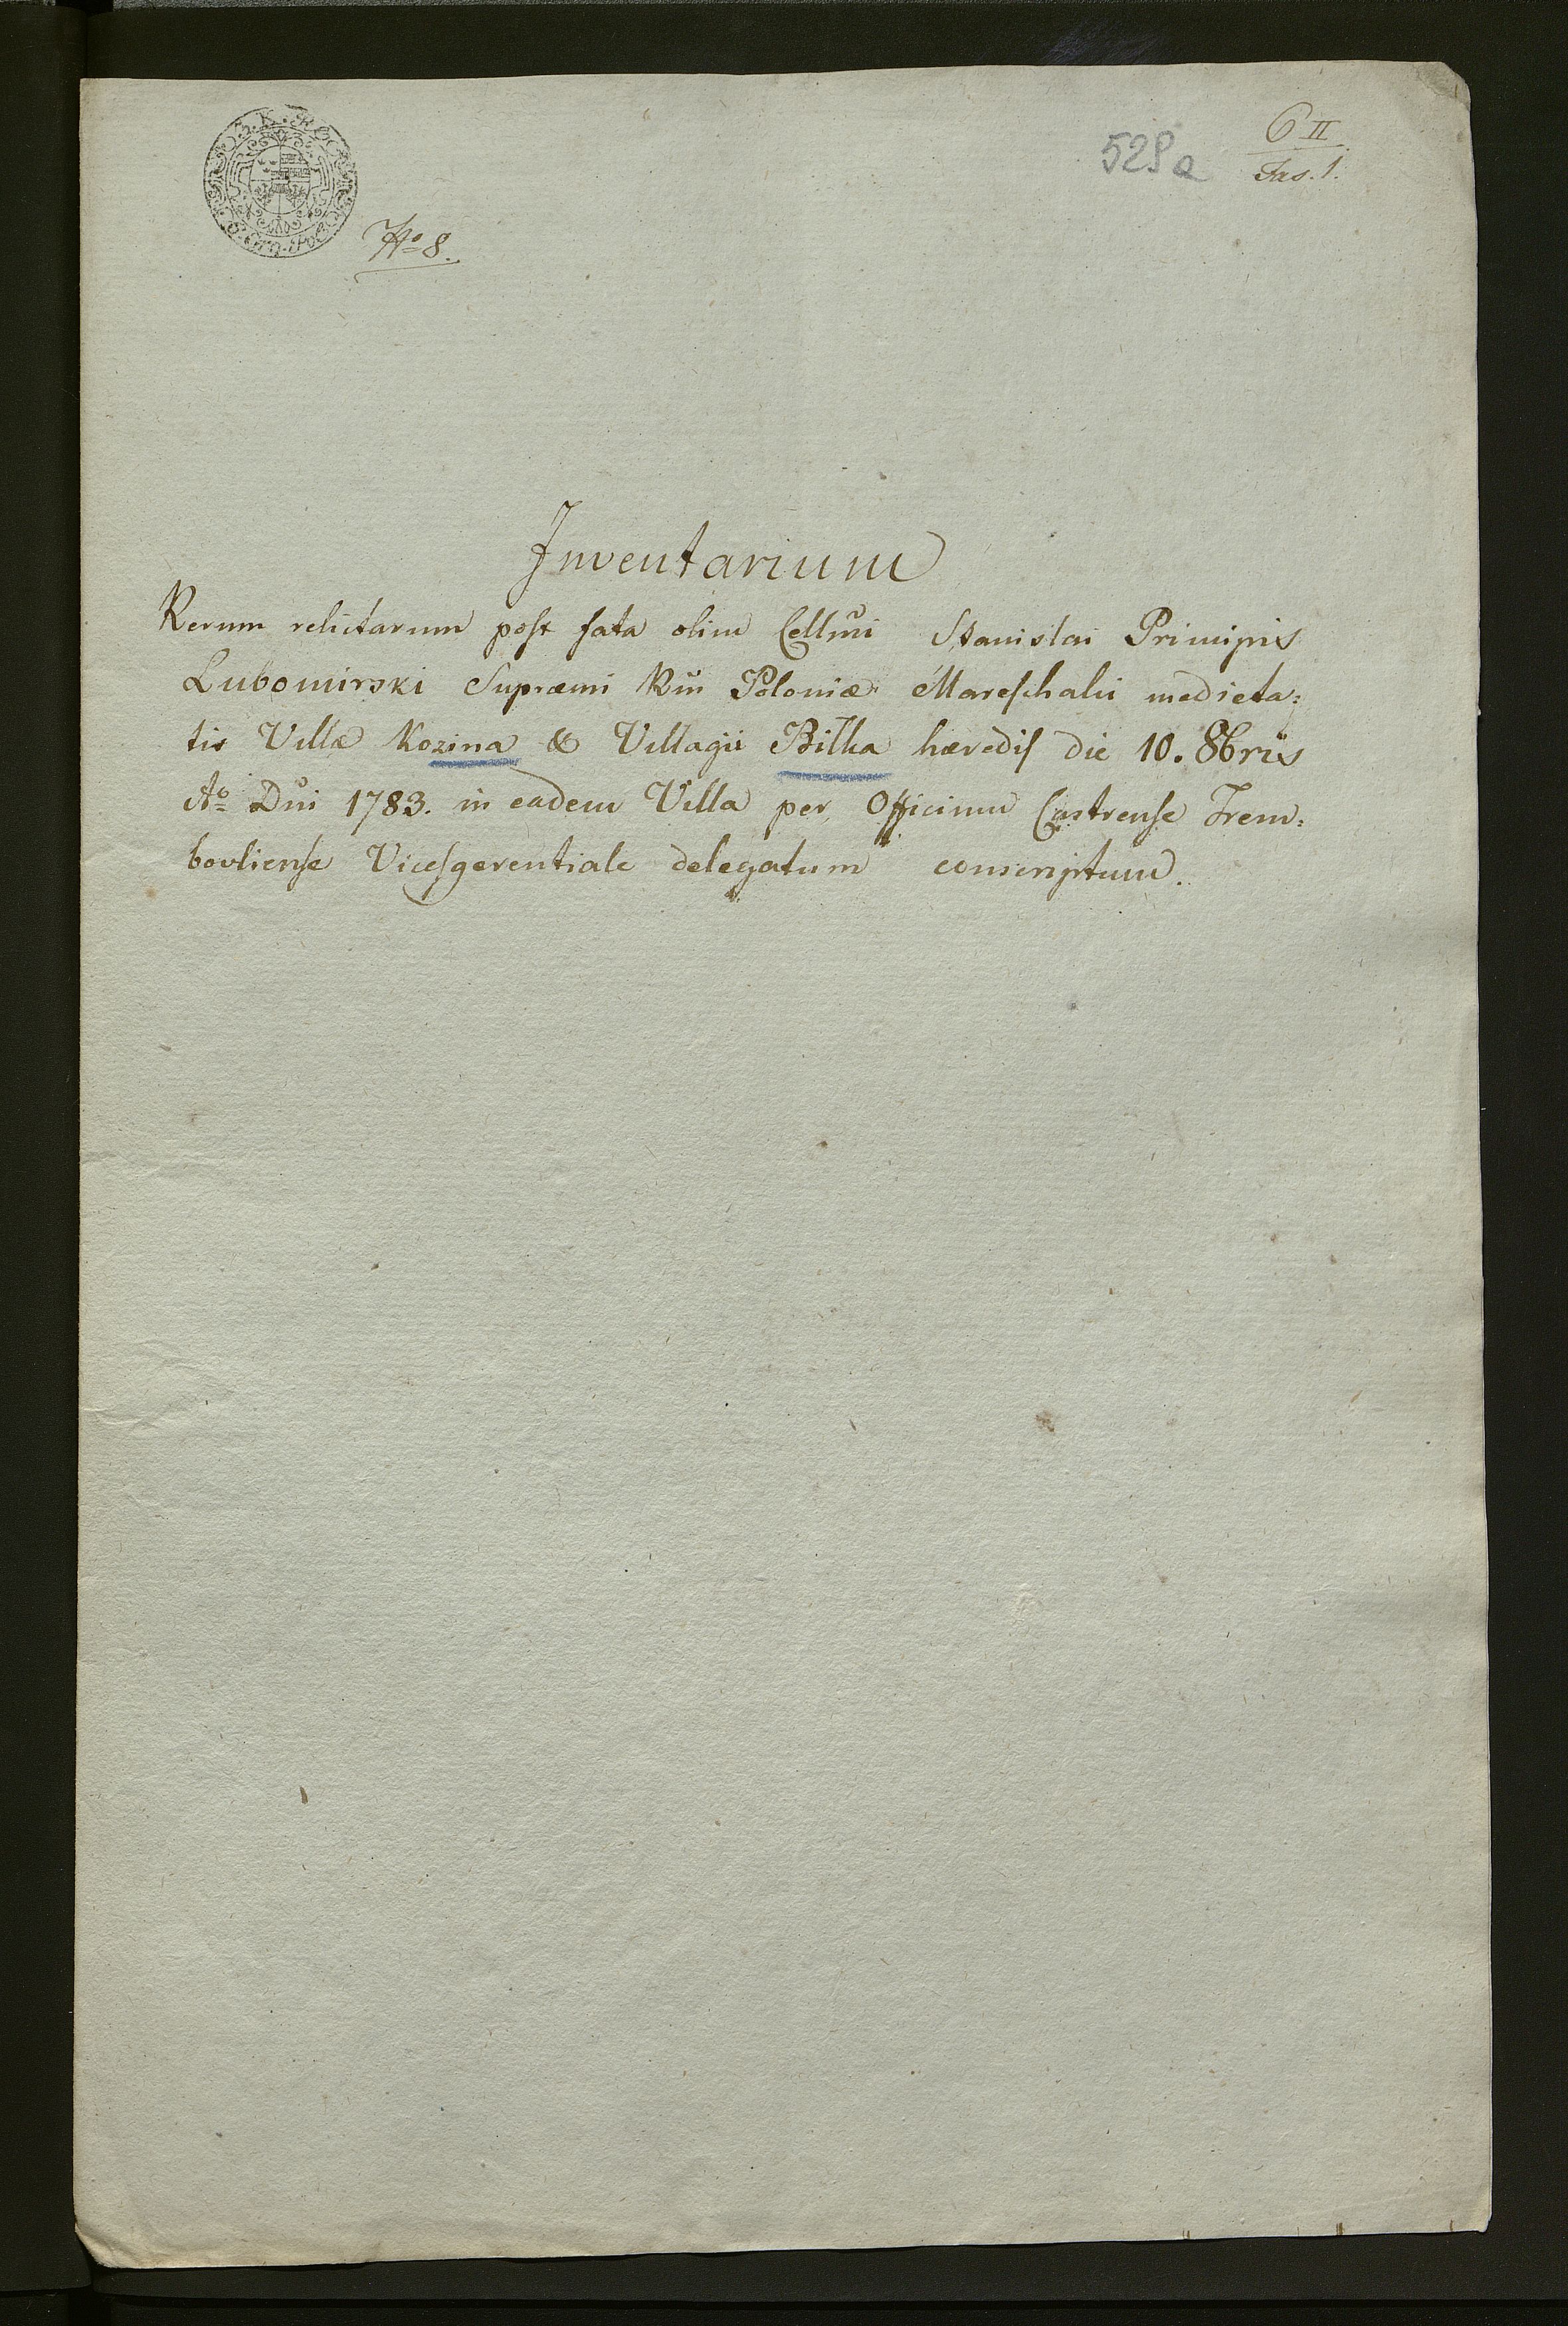 6 II
529a Fas. 1.
No 8.
Inventarium
Rerum relictarum post fata olim Cellmi Stanislai Principis
Lubomirski Supræmi Rni Poloniæ Mareschalii medieta:
tis Villæ Kozina & Villagii Bilka hæredis die 10. 8bris
Ao Dni 1783. in eadem Villa per Officium Castrense Trem:
bovliense Vicesgerentiale delegatum conscriptum.